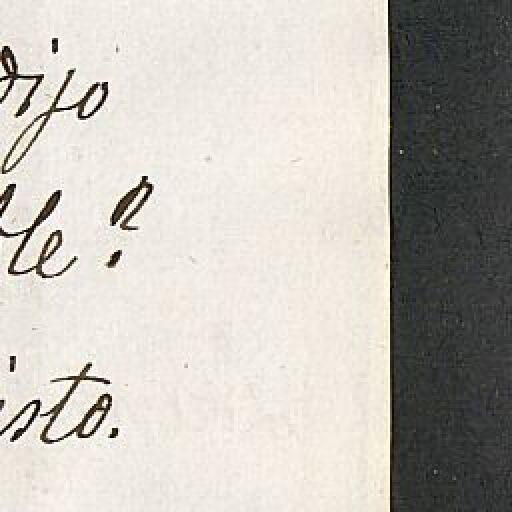 dijo
ble?
isto.